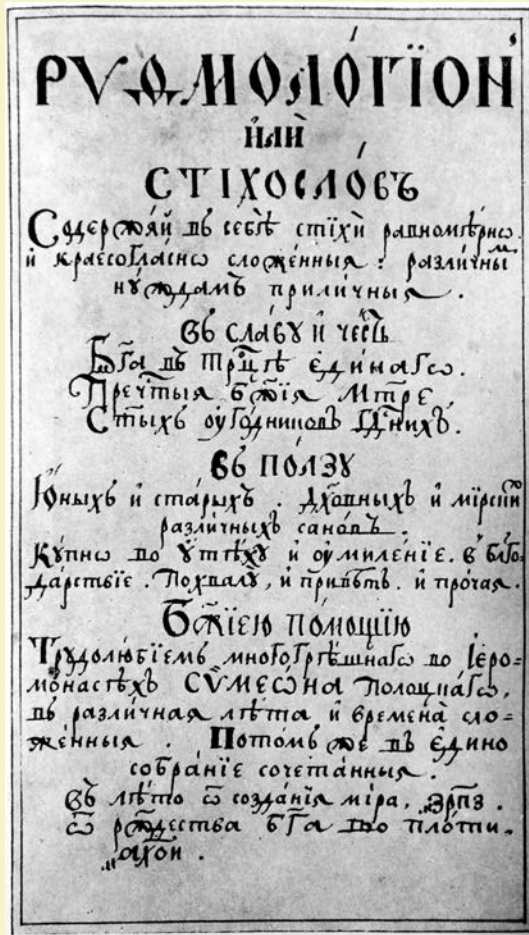 РѴѲМОЛО́ГЇОН
ИЛЍ
СТІХОСЛО́ВЪ
Содержа́й въ себѣ̀ стїхѝ равномѣ́рнѡ
и краесогла́снѡ сложе́нныя : разли́чны̑м
ну́ждамъ прили́чныя .
Въ сла́ву и че́сть
Бг҃а въ трⷪ҇цѣ еди́нагѡ .
Пречⷭ҇тыя бж҃їя Мт҃ре ,
Ст҃ыхъ оуго́дниковъ гдⷭ҇нихъ .
Въ по́лзу
Ю́ныхъ и ста́рыхъ . Дх҃о́вныхъ и мїрски́хъ
разли́чныхъ сано́въ .
Ку́пнѡ во ѹтѣ́ху и оумиле́нїе . в бл҃го-
да́рствїе . Похвалу̀ , и привѣ́тъ . и про́чая .
Бж҃їею по́мощїю
Трудолю́бїемъ многогрѣ́шнагѡ во їеро-
мона́сѣхъ СѴМЕѠ́НА По́лоцкагѡ ,
въ разли́чная лѣ́та и времена̀ сло-
же́нныя . Пото́мъ же въ еди́но
собра́нїе сочета́нныя .
Въ лѣ́то ѿ созда́нїя мі́ра , ҂зрп҃з .
ѿ ржⷭ҇дества̀ Бг҃а по пло́ти .
҂ахо҃и .